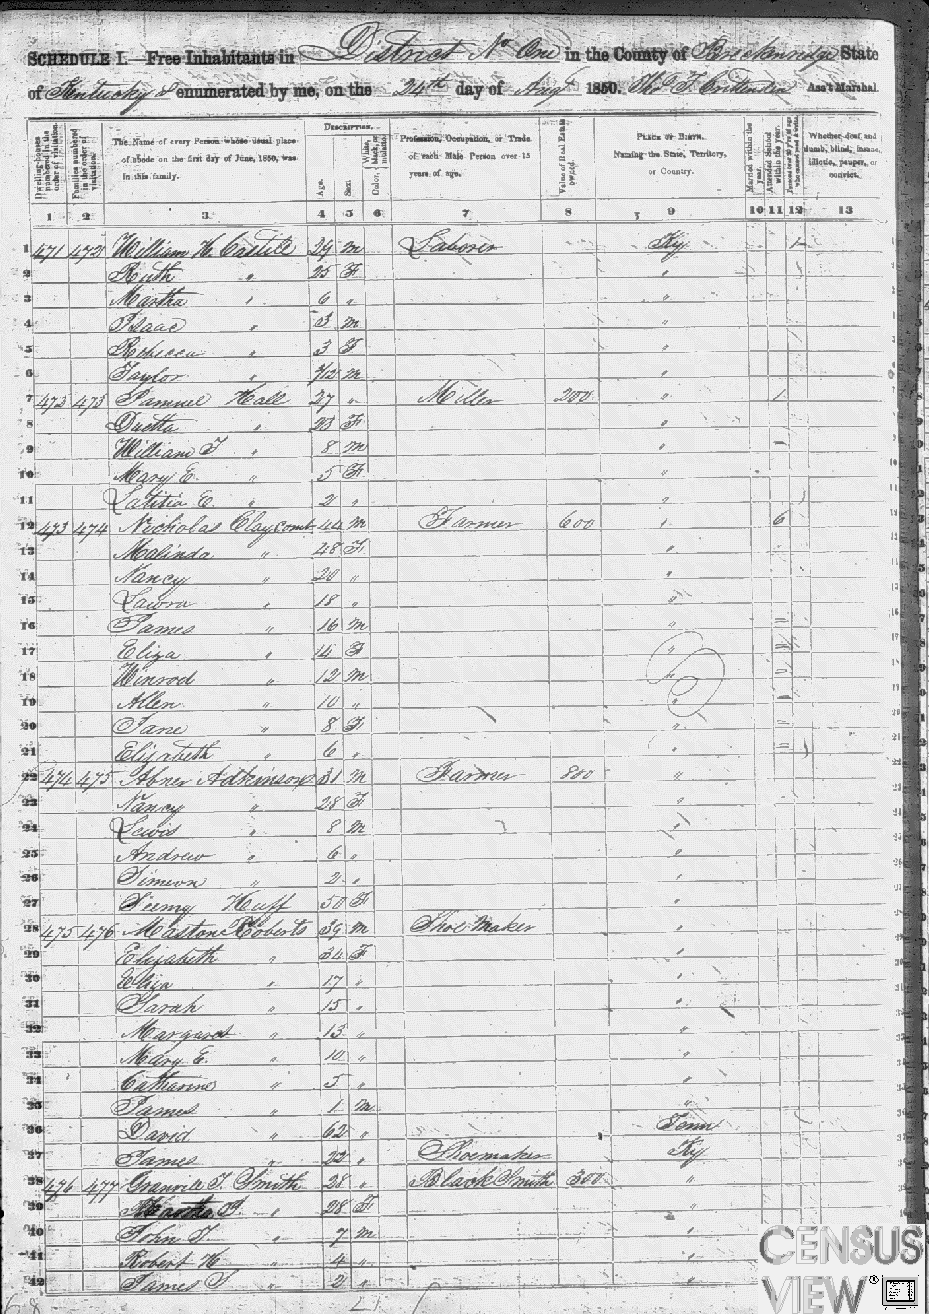 SCHEDULE I.—Free Inhabitants in District No One in the County of Breckenridge State
of Kentucky enumerated by me, on the 24th day of Augt 1850. Tho. T. Crittenden Ass't Marshal.
Dwelling-houses numbered in the order of visitation.
Families numbered in the order of visitation.
The Name of every Person whose usual place of abode on the first day of June, 1850, was in this family.
DESCRIPTION.
Age.
Sex.
Color, White, black, or mulatto.
Profession, Occupation, or Trade of each Male Person over 15 years of age.
Value of Real Estate owned.
PLACE OF BIRTH. Naming the State, Territory, or Country.
Married within the year.
Attended School within the year.
Whether deaf and dumb, blind, insane, idiotic, pauper, or convict.
1 2 3 4 5 6 7 8 9 10 11 12 13
1 471 472 William H. 29 m Laborer Ky 1
2 Ruth " 25 F "
3 Martha " 6 " "
4 Isaac " 3 m "
5 Rebecca " 3 F "
6 Taylor " 7/12 m "
7 472 473 Samuel Hall 27 " Miller 200 " 1
8 " 23 F "
9 William T " 8 m "
10 Mary E. " 5 F "
11 Latitia E. " 2 " "
12 473 474 Nicholas Claycomb 44 m Farmer 600 " 6
13 Malinda " 48 F "
14 Nancy " 20 " "
15 Lawra " 18 " "
16 James " 16 m "
17 Eliza " 14 F "
18 Winrod " 12 m "
19 Allen " 10 " "
20 Jane " 8 F "
21 Elizabeth " 6 " "
22 474 475 Abner Adkinson 31 m Farmer 800 "
23 Nancy " 28 F "
24 Lewis " 8 m "
25 Andrew " 6 " "
26 Simeon " 2 " "
27 Huff 50 F "
28 475 476 Maston Roberts 39 m Shoe maker "
29 Elizabeth " 34 F "
30 Eliza " 17 " "
31 Sarah " 15 " "
32 Margaret " 13 " "
33 Mary E. " 10 " "
34 Catharine " 5 " "
35 James " 1 m "
36 David " 62 " Tenn
37 James " 22 " Shoemaker Ky
38 476 477 Granvile T. Smith 28 " Black Smith 300 "
39 Martha A. " 28 F "
40 John T. " 7 m "
41 Robert H " 4 " "
42 James S " 2 " "
CENSUS
VIEW®